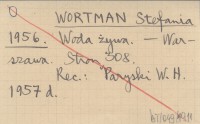 WORTMAN Stefania
1956. Woda żywa. — War-
szawa. Stron 308.
Rec.: Paryski W. H.
1957 d.